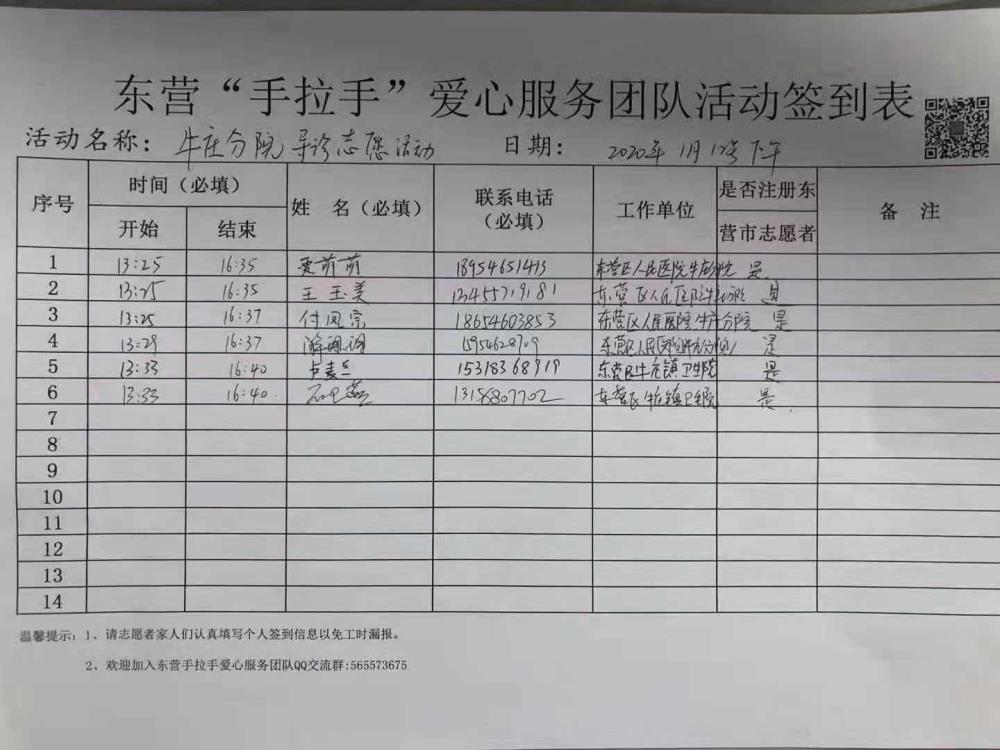 东营“手拉手”爱心服务团队活动签到表
活动名称： 牛庄分院导诊志愿活动 日期： 2020年11月12号下午
序号 时间（必填） 姓 名（必填） 联系电话（必填） 工作单位 是否注册东营市志愿者 备 注
开始 结束
1 13:25 16:35 萌萌 18954651413 东营区人民医院牛庄分院 是
2 13:25 16:35 王玉美 东营区人民医院牛庄分院 是
3 13:25 16:37 付凤宗 18654603853 东营区人民医院牛庄分院 是
4 13:29 16:37 东营区人民医院牛庄分院 是
5 13:33 16:40 15318368919 东营区牛庄镇卫生院 是
6 13:33 16:40 13158807702 东营区牛庄镇卫生院 是
7
8
9
10
11
12
13
14
温馨提示：1、请志愿者家人们认真填写个人签到信息以免工时漏报。
2、欢迎加入东营手拉手爱心服务团队QQ交流群:565573675